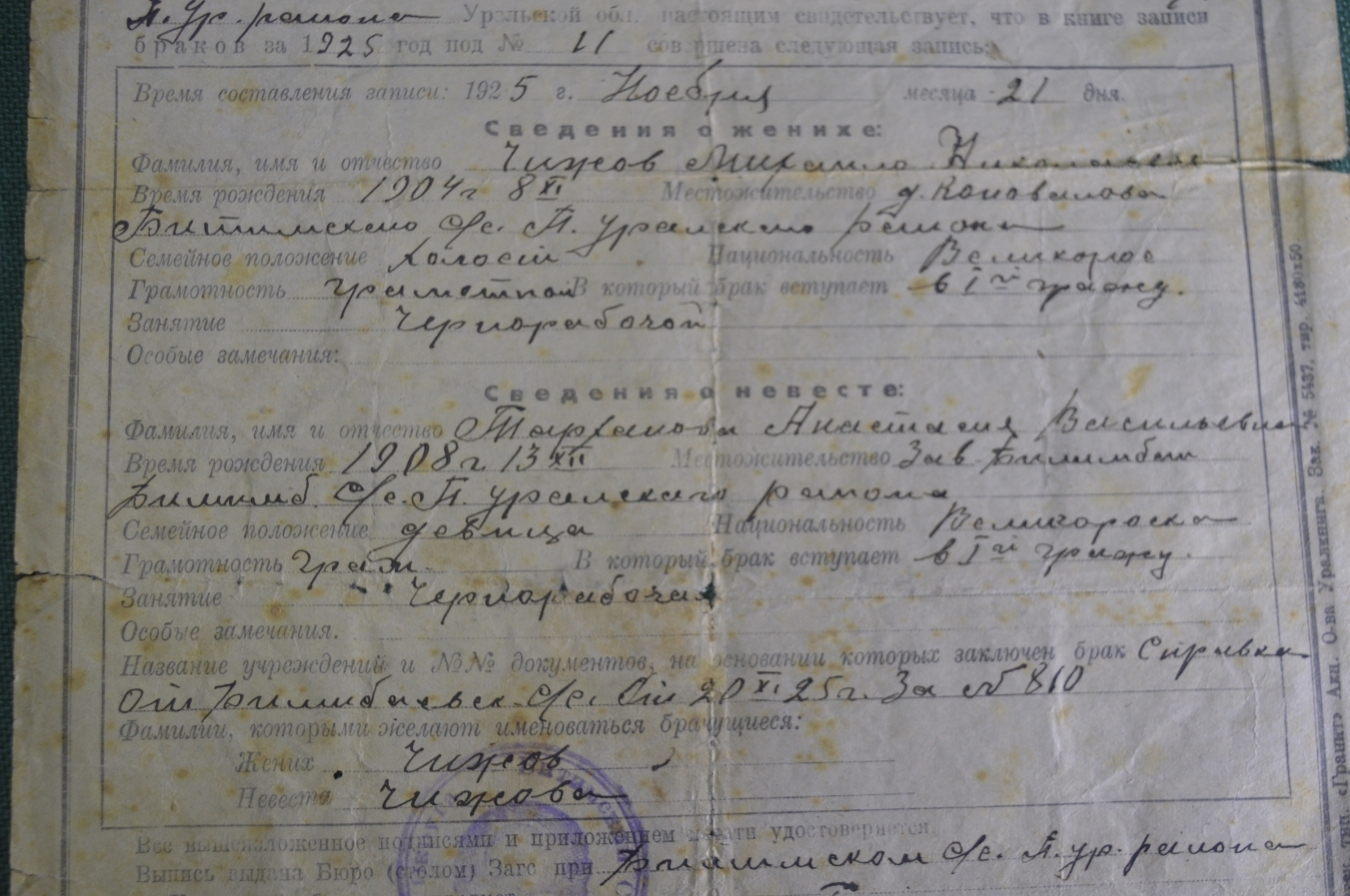 П. Ур. района Уральской обл. настоящим свидетельствует, что в книге записи
браков за 1925 год под № 11 совершена следующая запись:
Время составления записи: 1925 г. Ноебря месяца 21 дня.
Сведения о женихе:
Фамилия, имя и отчество Чижов Михаило
Время рождения 1904 г 8 XI Местожительство д. Коновалова
Битимского с/с. П. уралского района
Семейное положение холостй Национальность Великорос
Грамотность грамотной В который брак вступает в I й гражу.
Занятие Чернорабочой
Особые замечания:
Сведения о невесте:
Фамилия, имя и отчество Тарханова Анастасия Васильевна
Время рождения 1908 г. 13 XII Местожительство Зав. Билимбай
Билимб. с/с. П. уралского района
Семейное положение девица Национальность Великороска
Грамотность грам. В который брак вступает в I й гражу.
Занятие Чернорабочая
Особые замечания.
Название учреждений и №№ документов, на основании которых заключен брак Справка
От Билимбаевск с/с. От 20 XI 25 г. За № 810
Фамилии, которыми желают именоваться брачущиеся:
Жених Чижов
Невеста Чижова
Все вышеизложенное подписями и приложением печати удостоверяется
Выпись выдана Бюро (столом) Загс при Битимском с/с. П. ур. района
Зак. № 5437, тир. 4180х50
тип. «Гранит» Акц. О-ва Уралкнига